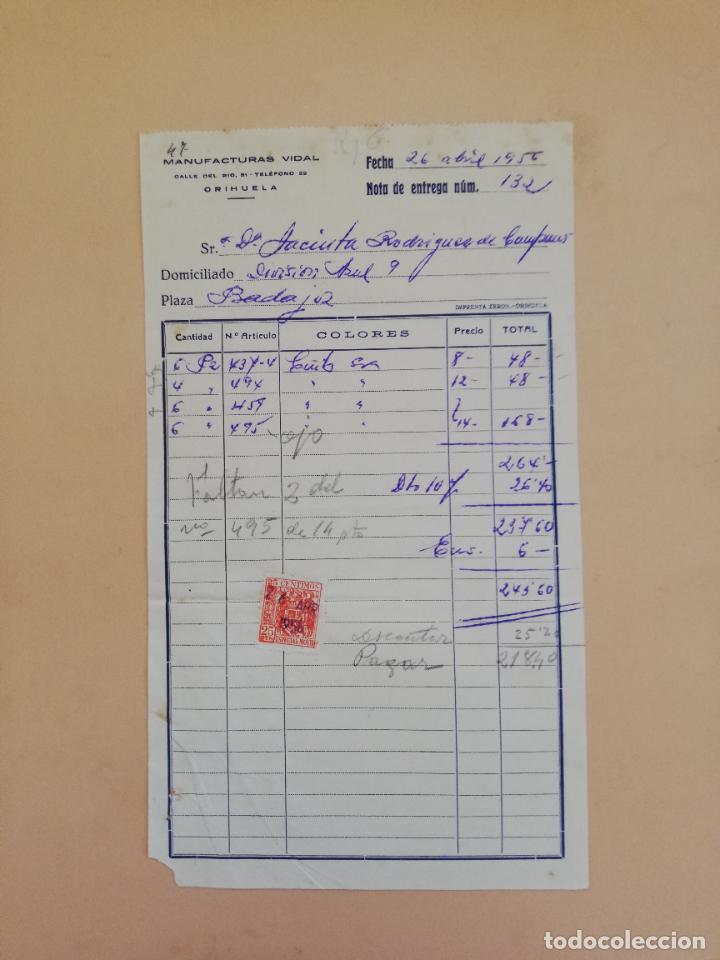 47
MANUFACTURAS VIDAL
CALLE DEL RIO, 51 - TELÉFONO 29
ORIHUELA
Fecha 26 abril 1956
Nota de entrega núm. 132
Sr.ª Dª Jacinta Rodriguez de
Domiciliado Division Azul 9
Plaza Badajoz
IMPRENTA ZERON.-ORIHUELA
Cantidad N.º Artículo COLORES Precio TOTAL
6 Pz 437-4 8- 48-
4 " 494 " " 12- 48-
6 " 459 " "
6 " 495 ojo 14- 168-
264-
Faltan 3 del Dto 10% 26'40
no 495 de 14 pts 237'60
Env. 6-
243'60
25 CENTIMOS
26 ABR 1956
25
ESPECIAL MOVIL
Descontar 25'20
Pagar 218'40
todocoleccion
todocoleccion.net